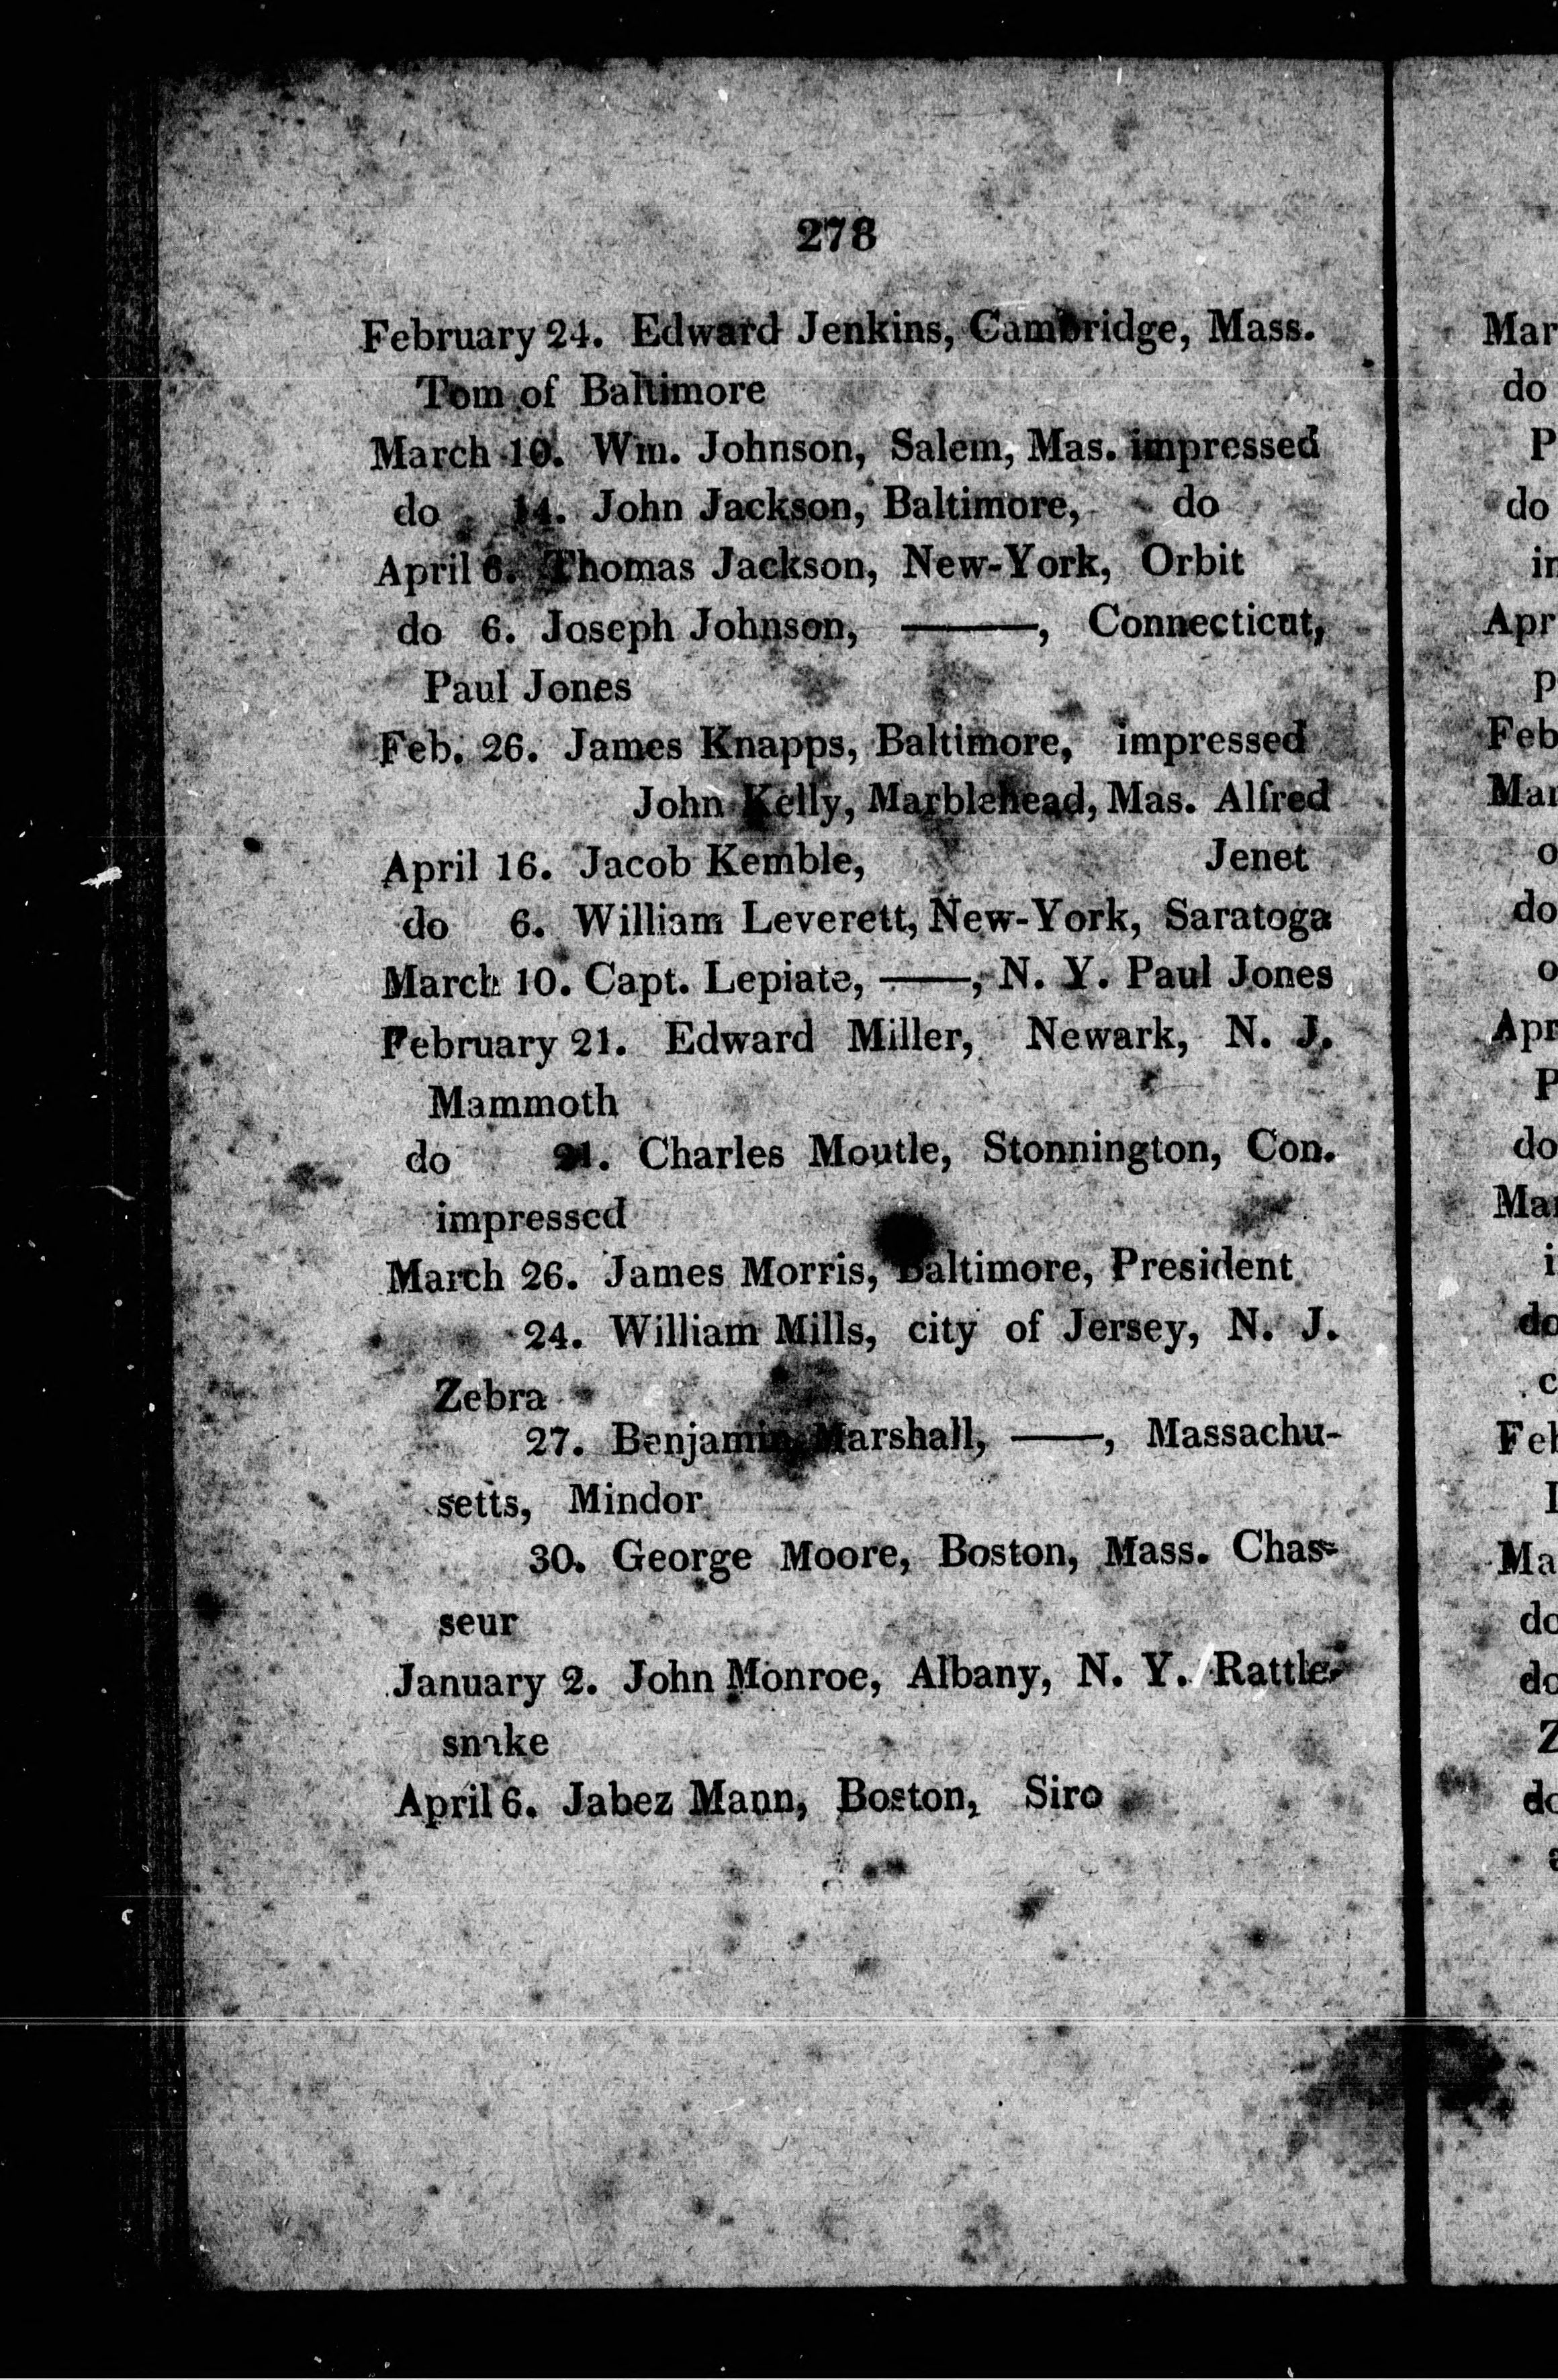 278
February 24. Edward Jenkins, Cambridge, Mass.
Tom of Baltimore
March 10. Wm. Johnson, Salem, Mas. impressed
do 14. John Jackson, Baltimore, do
April 6. Thomas Jackson, New-York, Orbit
do 6. Joseph Johnson, ———, Connecticut,
Paul Jones
Feb. 26. James Knapps, Baltimore, impressed
John Kelly, Marblehead, Mas. Alfred
April 16. Jacob Kemble, Jenet
do 6. William Leverett, New-York, Saratoga
March 10. Capt. Lepiate, ——, N. Y. Paul Jones
February 21. Edward Miller, Newark, N. J.
Mammoth
do 21. Charles Moutle, Stonnington, Con.
impressed
March 26. James Morris, Baltimore, President
24. William Mills, city of Jersey, N. J.
Zebra
27. Benjamin Marshall, ——, Massachu-
setts, Mindor
30. George Moore, Boston, Mass. Chas-
seur
January 2. John Monroe, Albany, N. Y. Rattle-
snake
April 6. Jabez Mann, Boston, Siro
Mar
do
P
do
in
Apr
p
Feb
Mar
o
do
o
Apr
P
do
Mar
i
do
c
Feb
Ma
do
do
Z
do